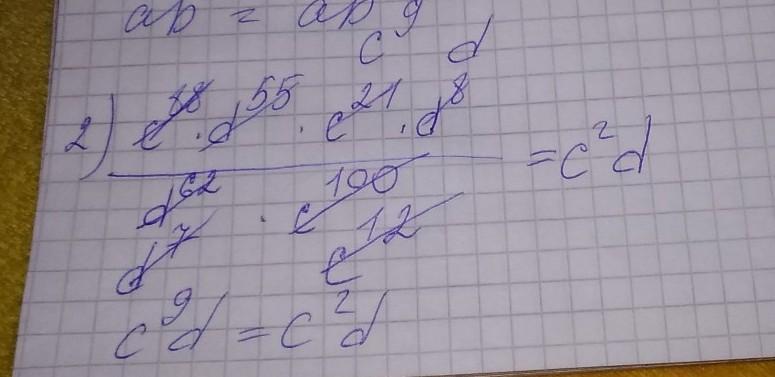 ab = ab⁹
c⁹ d
2) c¹⁸ · d⁵⁵ · c²¹ · d⁸
= c²d
d⁶² · c¹⁰⁰
d⁷ c¹²
c⁹d = c²d